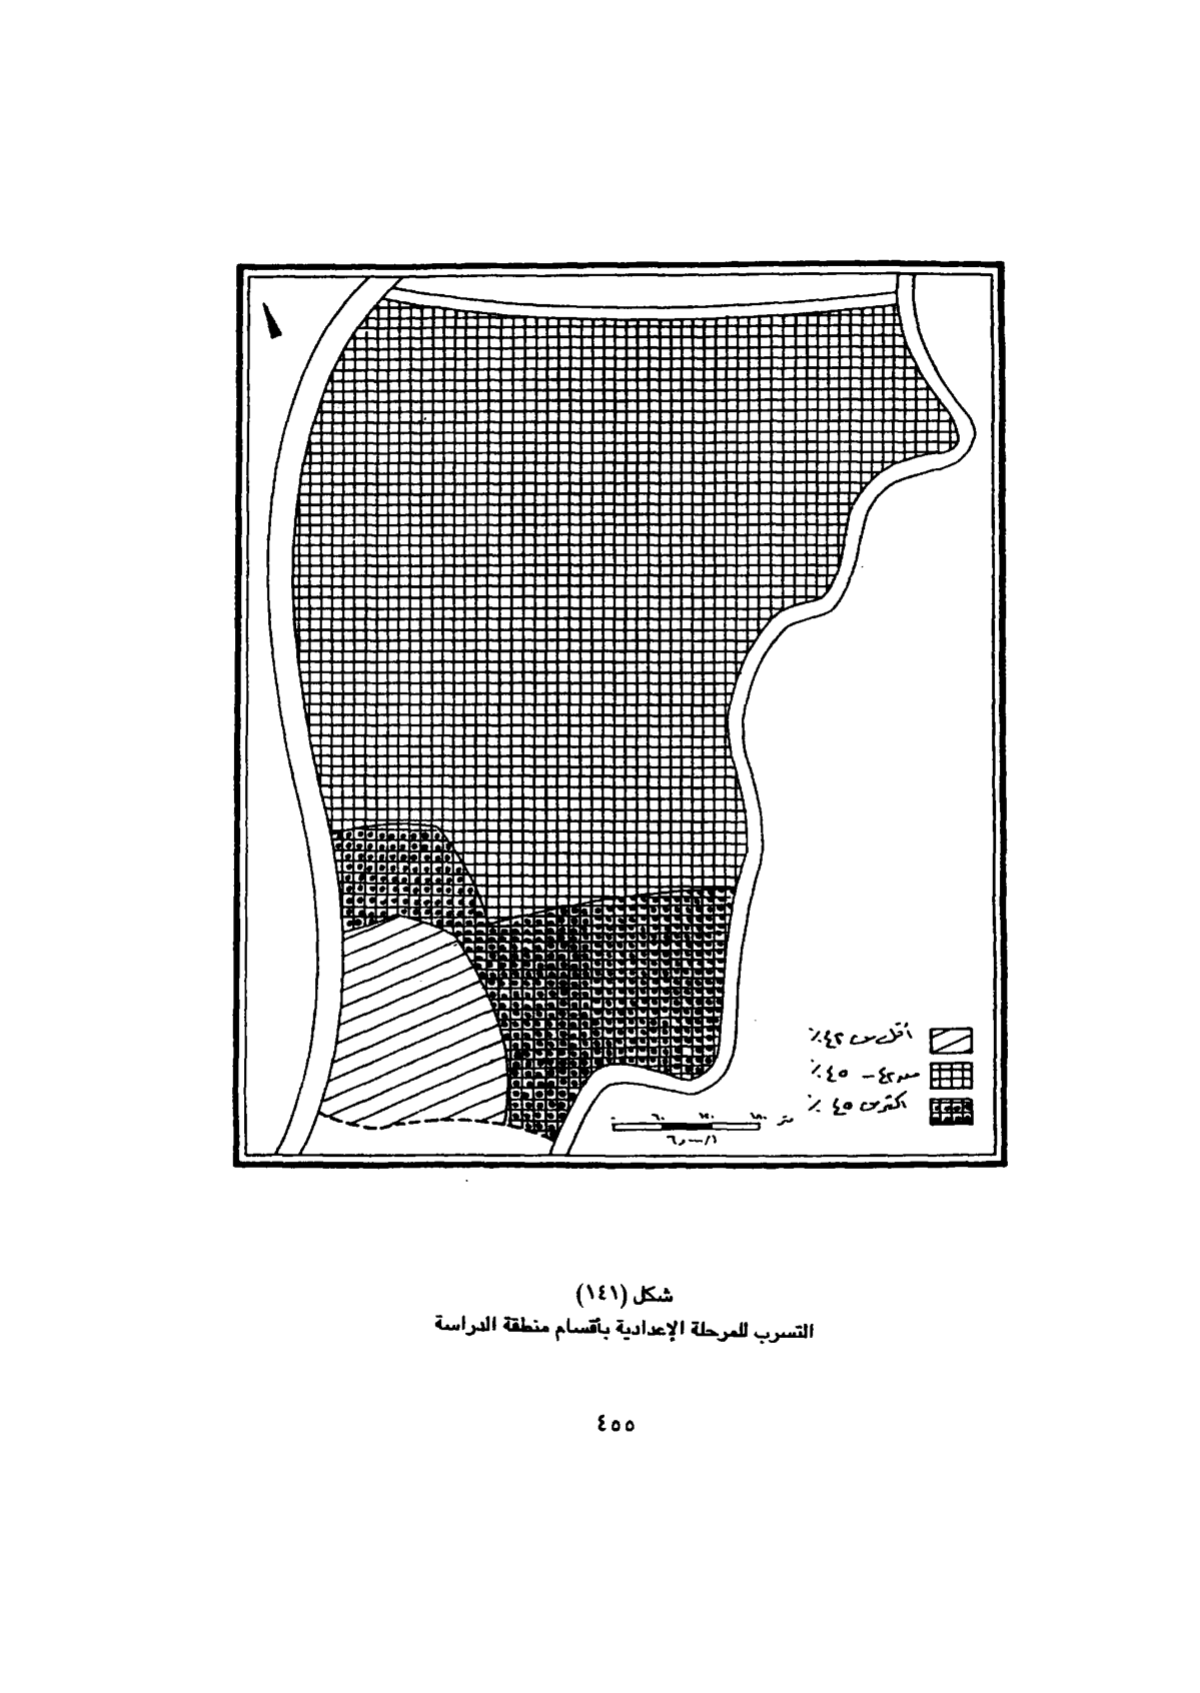 أقل من ٤٢٪
من ٤٢ – ٤٥٪
أكثر من ٤٥٪
٠ ٦٠ ١٢٠ ١٨٠ متر
شكل (١٤١)
التسرب للمرحلة الإعدادية بأقسام منطقة الدراسة
٤٥٥